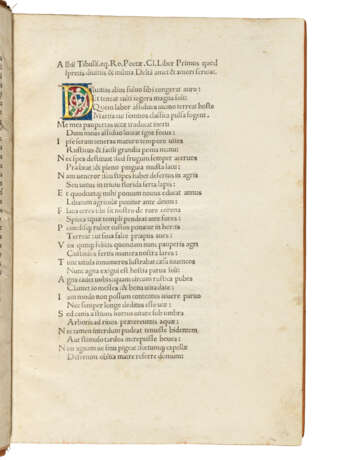 Albii Tibulli. eq. Ro. Poetæ. Cl. Liber Primus quod
spretis diuitiis & militia Deliã amet & amori seruiat.
Diuitias alius fuluo sibi congerat auro:
Et teneat culti iugera magna soli:
Quem labor assiduus uicino terreat hoste
Martia cui somnos classica pulsa fugent.
Me mea paupertas uitæ traducat inerti
Dum meus assiduo luceat igne focus:
Ipse seram teneras maturo tempore uites
Rusticus & facili grandia poma manu:
Nec spes destituat: sed frugum semper aceruos
Præbeat: & pleno pinguia musta lacu:
Nam ueneror seu stipes habet desertus in agris
Seu uetus in triuio florida serta lapis:
Et quodcunq; mihi pomum nouus educat annus
Libatum agricolæ ponitur ante deum:
Flaua ceres tibi sit nostro de rure corona
Spicea: quæ templi pendeat ante fores:
Pomosisq; ruber custos ponatur in hortis
Terreat ut sæua falce priapus aues:
Vos quoq; felicis quondam nunc pauperis agri
Custodes fertis munera nostra lares:
Tunc uitula innumeros lustrabat cæsa iuuencos
Nunc agna exigui est hostia parua soli:
Agna cadet uobis: quam circum rustica pubes
Clamet io messes: & bona uina date:
Iam modo non possum contentus uiuere paruo
Nec semper longe deditus esse uiæ:
Sed canis æstiuos hortus uitare sub umbra
Arboris ad riuos prætereuntis aquæ:
Nec tamen interdum pudeat tenuisse bidentem
Aut stimulo tardos increpuisse boues:
Non agnam ue sinu pigeat foetumq; capellæ
Desertum oblita matre referre domum: